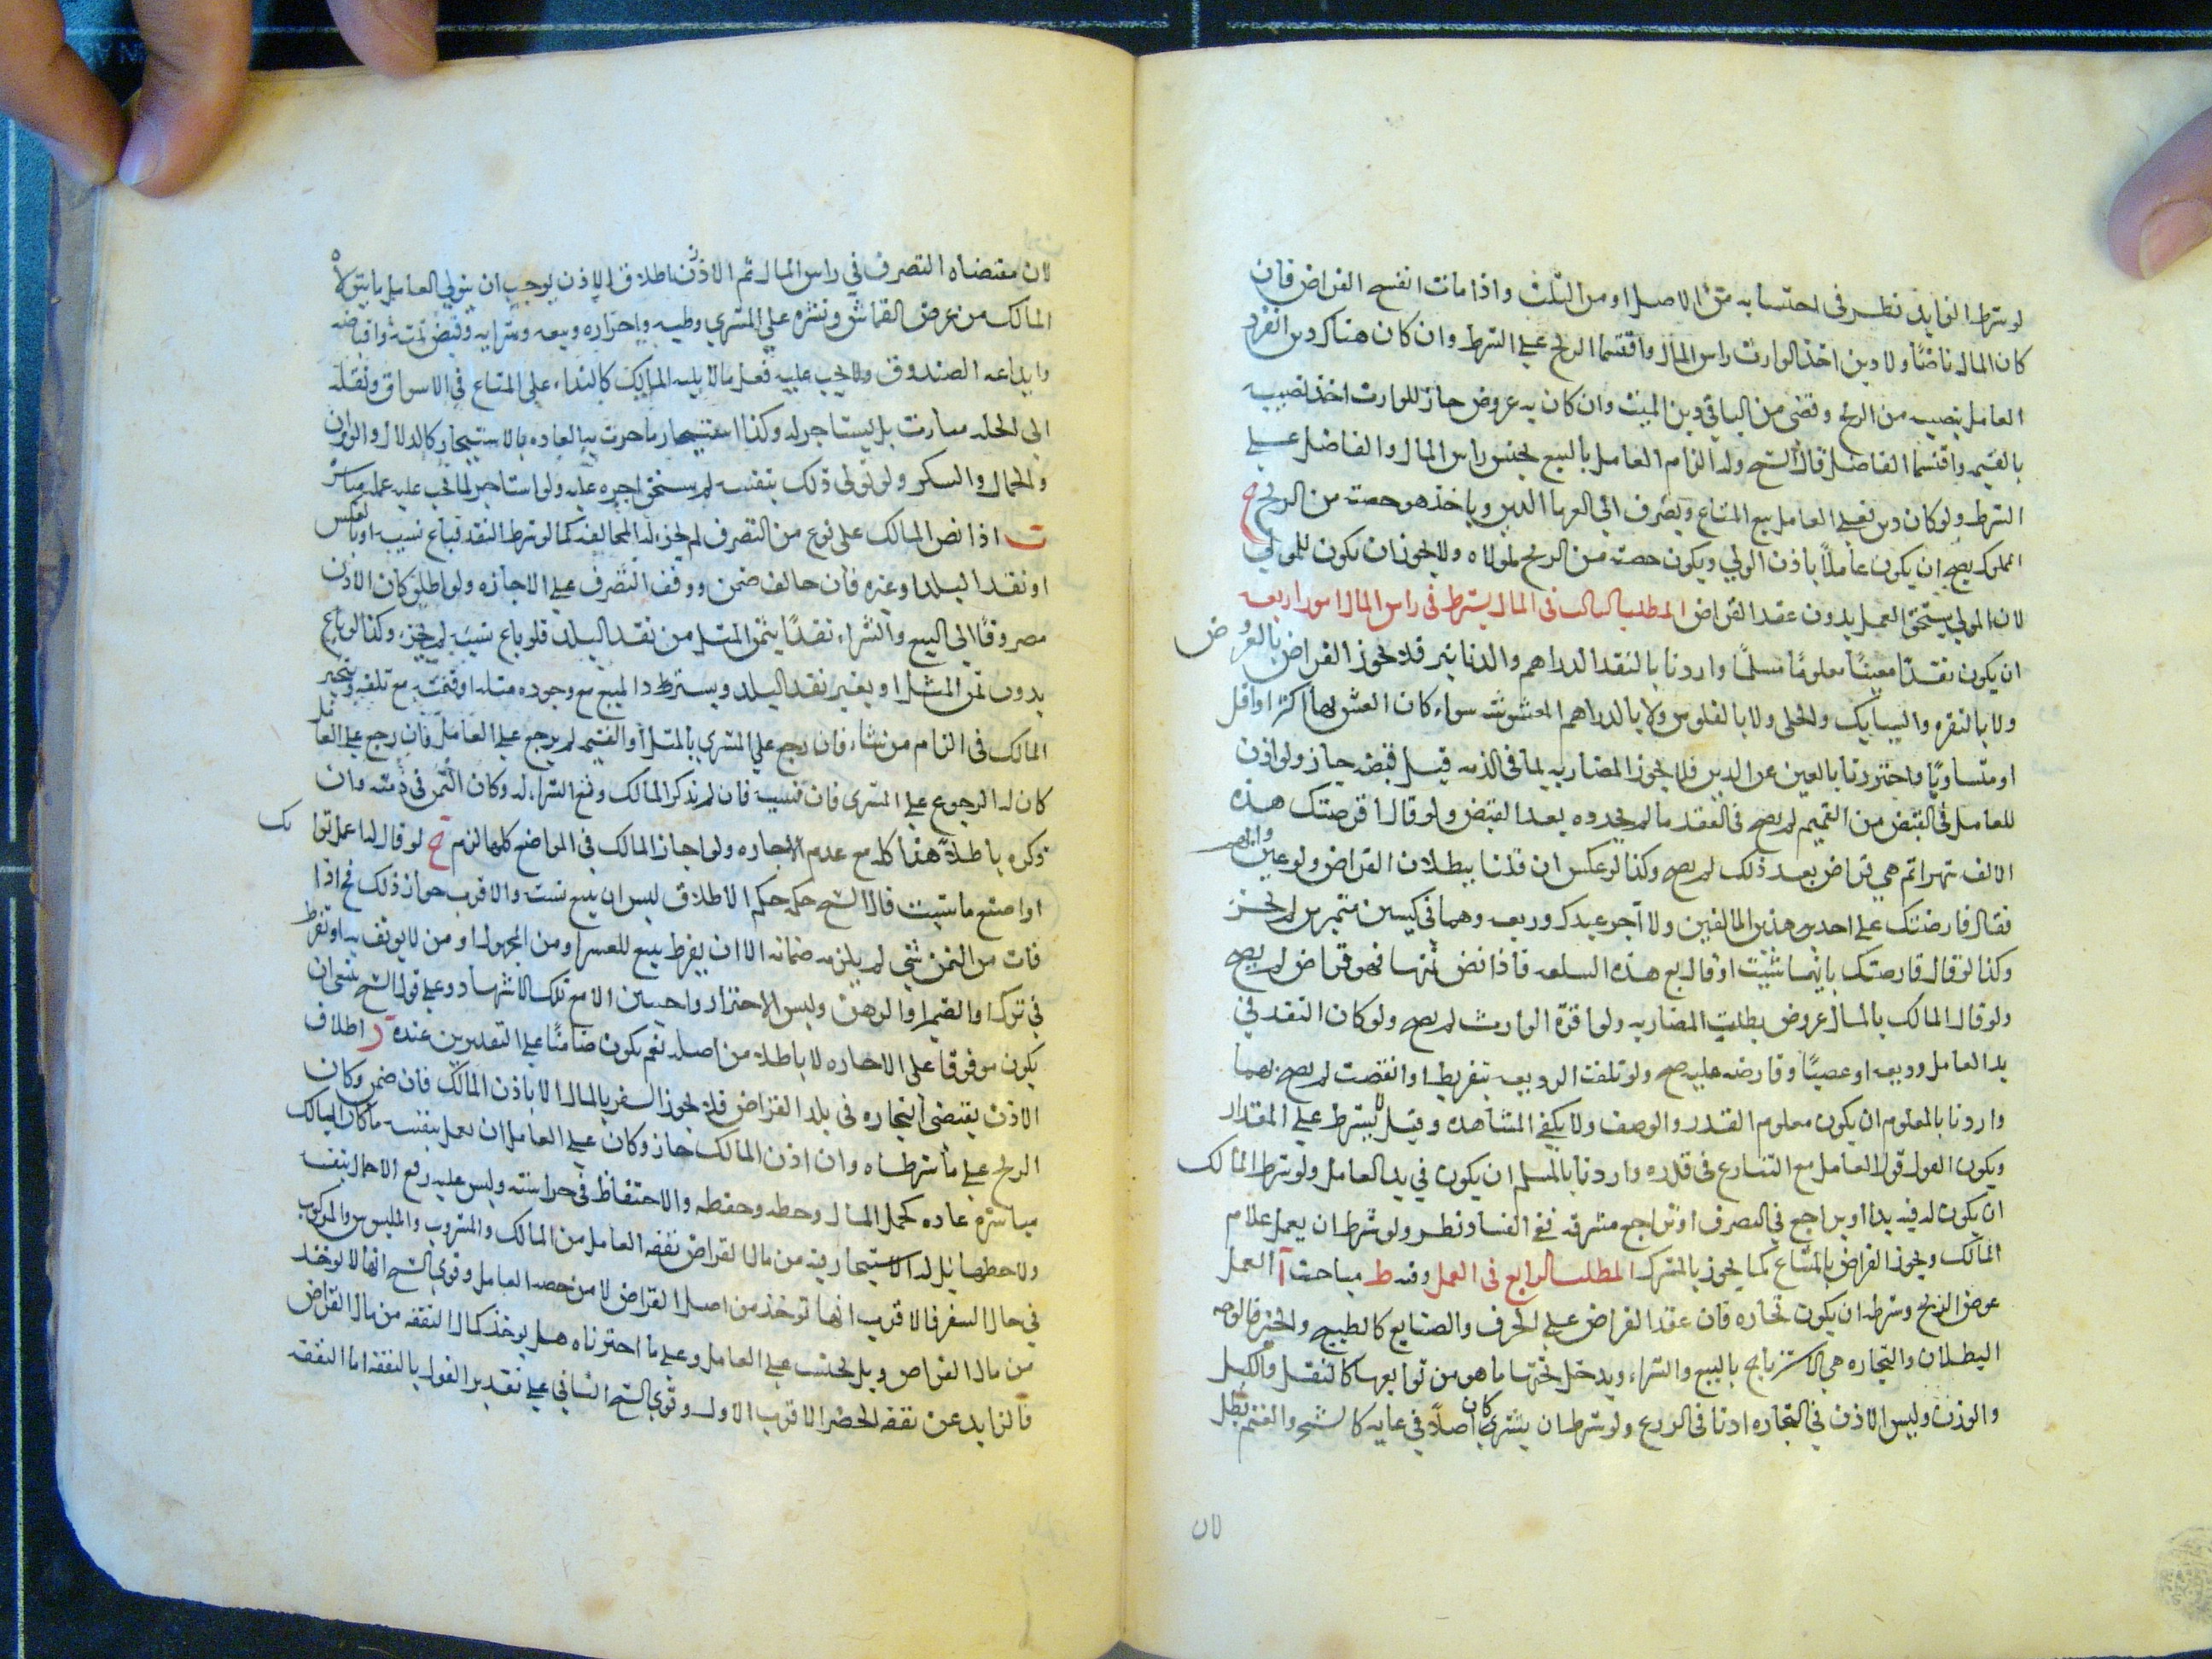 لو شرط الزايد نظر في احتسابه من الاصل او من الثلث واذا مات انفسخ القراض فان
كان المال ناضا ولا دين اخذ الوارث راس المال واقتسما الربح على الشرط وان كان هناك دين انفرد
العامل بنصيبه من الربح وقضى من الباقي دين الميت وان كان به عروض جاز للوارث اخذ نصيبه
بالقيمه واقتسما الفاضل قال الشيخ وله الزام العامل بالبيع بجنس راس المال والفاضل على
الشرط ولو كان دين فعلى العامل بيع المتاع ويصرف الى الغرما الدين وياخذ هو حصته من الربح ح
المملوك يصح ان يكون عاملا باذن المولى ويكون حصته من الربح لمولاه ولا يجوز ان يكون للمولى
لان المولى يستحق العمل بدون عقد القراض المطلب الثالث في المال يشترط في راس المال امور اربعه
ان يكون نقدا معينا معلوما مسلما واردنا بالنقد الدراهم والدنانير فلا يجوز القراض بالعروض
ولا بالنقره والسبايك والحلي ولا بالفلوس ولا بالدراهم المغشوشه سواء كان الغش لها اكثر او اقل
او متساويا واحترزنا بالعين عن الدين فلا يجوز المضاربه لما في الذمه قبل قبضه جاز ولو اذن
للعامل في القبض من الغريم لم يصح في العقد ما لم يجدده بعد القبض ولو قال اقرضتك هذه
الالف شهرا ثم هي قراض بعد ذلك لم يصح وكذا لو عكس ان قلنا ببطلان القراض ولو عين
فقال قارضتك على احد من هذين الالفين ولا اجر عندك وديعه وهما في كيسين متميزين لم يجز
وكذا لو قال قارضتك بايهما شئت او قال بع هذه السلعه فاذا نض ثمنها فهو قراض لم يصح
ولو قال المالك بالمال عروض بطلت المضاربه ولو اقره الوارث لم يصح ولو كان النقد في
يد العامل وديعه او غصبا وقارضه عليه صح ولو تلفت الوديعه بتفريط او انقضت لم يصح بهما
واردنا بالمعلوم ان يكون معلوم القدر والوصف ولا يكفي المشاهده وقيل لا يشترط على المقدار
ويكون القول قول العامل مع التنازع في قدره واردنا بالمسلم ان يكون في يد العامل ولو شرط المالك
ان يكون له فيه يد او يراجع في التصرف او يراجع مشرفه ففي الفساد نظر ولو شرط ان يعمل غلام
المالك ويجوز القراض بالمشاع كما يجوز بالمشترك المطلب الرابع في العمل وفيه ط مباحث آ العمل
عوض الربح وشرطه ان يكون تجاره فان عقد القراض على الحرف والصنايع كالطبخ والخبز فالوجه
البطلان والتجاره هي الاسترباح بالبيع والشراء ويدخل تحتها ما هو من توابعها كالنقل والكيل
والوزن وليس الاذن في التجاره اذنا في الزرع ولو شرط ان يشتري اصلا كان في غايه كالشجر والغنم بطل
لان
لان مقتضاه التصرف في راس المال ثم الاذن اطلاق الاذن يوجب ان يتولى العامل ما يتولاه
المالك من عرض القماش ونشره على المشتري وطيه واحرازه وبيعه وشرايه وقبض ثمنه واقباضه
وايداعه الصندوق ولا يجب عليه فعل ما لا يليه المالك كالنداء على المتاع في الاسواق ونقله
الى الخان مسارت بل يستاجر له وكذا استيجار ما جرت به العاده بالاستيجار كالدلال والوزان
والحمال والسكر ولو تولى ذلك بنفسه لم يستحق اجره عليه ولو استاجر لما يجب عليه عمله مباشره
ت اذا نص المالك على نوع من التصرف لم يجز له المخالفه كما لو شرط النقد فباع نسيه او بالعكس
او نقد البلد او غيره فان خالف ضمن ووقف التصرف على الاجازه ولو اطلق كان الاذن
مصروفا الى البيع والشراء نقدا بثمن المثل من نقد البلد فلو باع نسيه لم يجز وكذا لو باع
بدون ثمن المثل او بغير نقد البلد ويسترد المبيع مع وجوده مثله او قيمته مع تلفه ويتخير
المالك في الزام من شاء فان رجع على المشتري بالمثل او القيمه لم يرجع على العامل فان رجع على العامل
كان له الرجوع على المشتري فان لم يذكر المالك وقع الشراء له وكان الثمن في ذمته وان
ذكره باطلا هذا كله مع عدم الاجازه ولو اجاز المالك في المواضع كلها لزم ح لو قال له اعمل برايك
او اصنع ما شئت قال الشيخ حكمه حكم الاطلاق ليس ان يبيع نسيه والاقرب جواز ذلك فح اذا
فات من الثمن شي لم يلزمه ضمانه الا ان يفرط ببيع للمعسر او من المجهول او من لا يوثق به او يفرط
في ترك او الضمير او الرهن وليس الاحتراز واحسبن الا مع تلك الاشهاد وعلى قول الشيخ ينبغي ان
يكون موقوفا على الاجازه لا باطلا من اصله نعم يكون ضامنا على التقديرين عنده د اطلاق
الاذن يقتضي التجاره في بلد القراض فلا يجوز السفر بالمال الا باذن المالك فان ضمن وكان
الربح على ما شرطاه وان اذن المالك جاز وكان على العامل ان يعمل بنفسه ما كان المالك
مباشره عاده كحمل المال وحطه وحفظه والاحتفاظ في حراسته وليس عليه رفع الاحمال بنفسه
ولا حطها بل له الاستيجار فيه من مال القراض نفقه العامل من المالك والمشروب والملبوس والمركوب
في حال السفر فالاقرب انها توخذ من اصل القراض لا من حصه العامل وقوى الشيخ انها لا توخذ
من مال القراض ويل يحتسب على العامل وعلى ما اخترناه هل يوخذ كمال النفقه من مال القراض
فالزايد عن نفقه الحضر الاقرب الاول وقوى الشيخ الثاني على تقدير القول بالنفقه اما النفقه